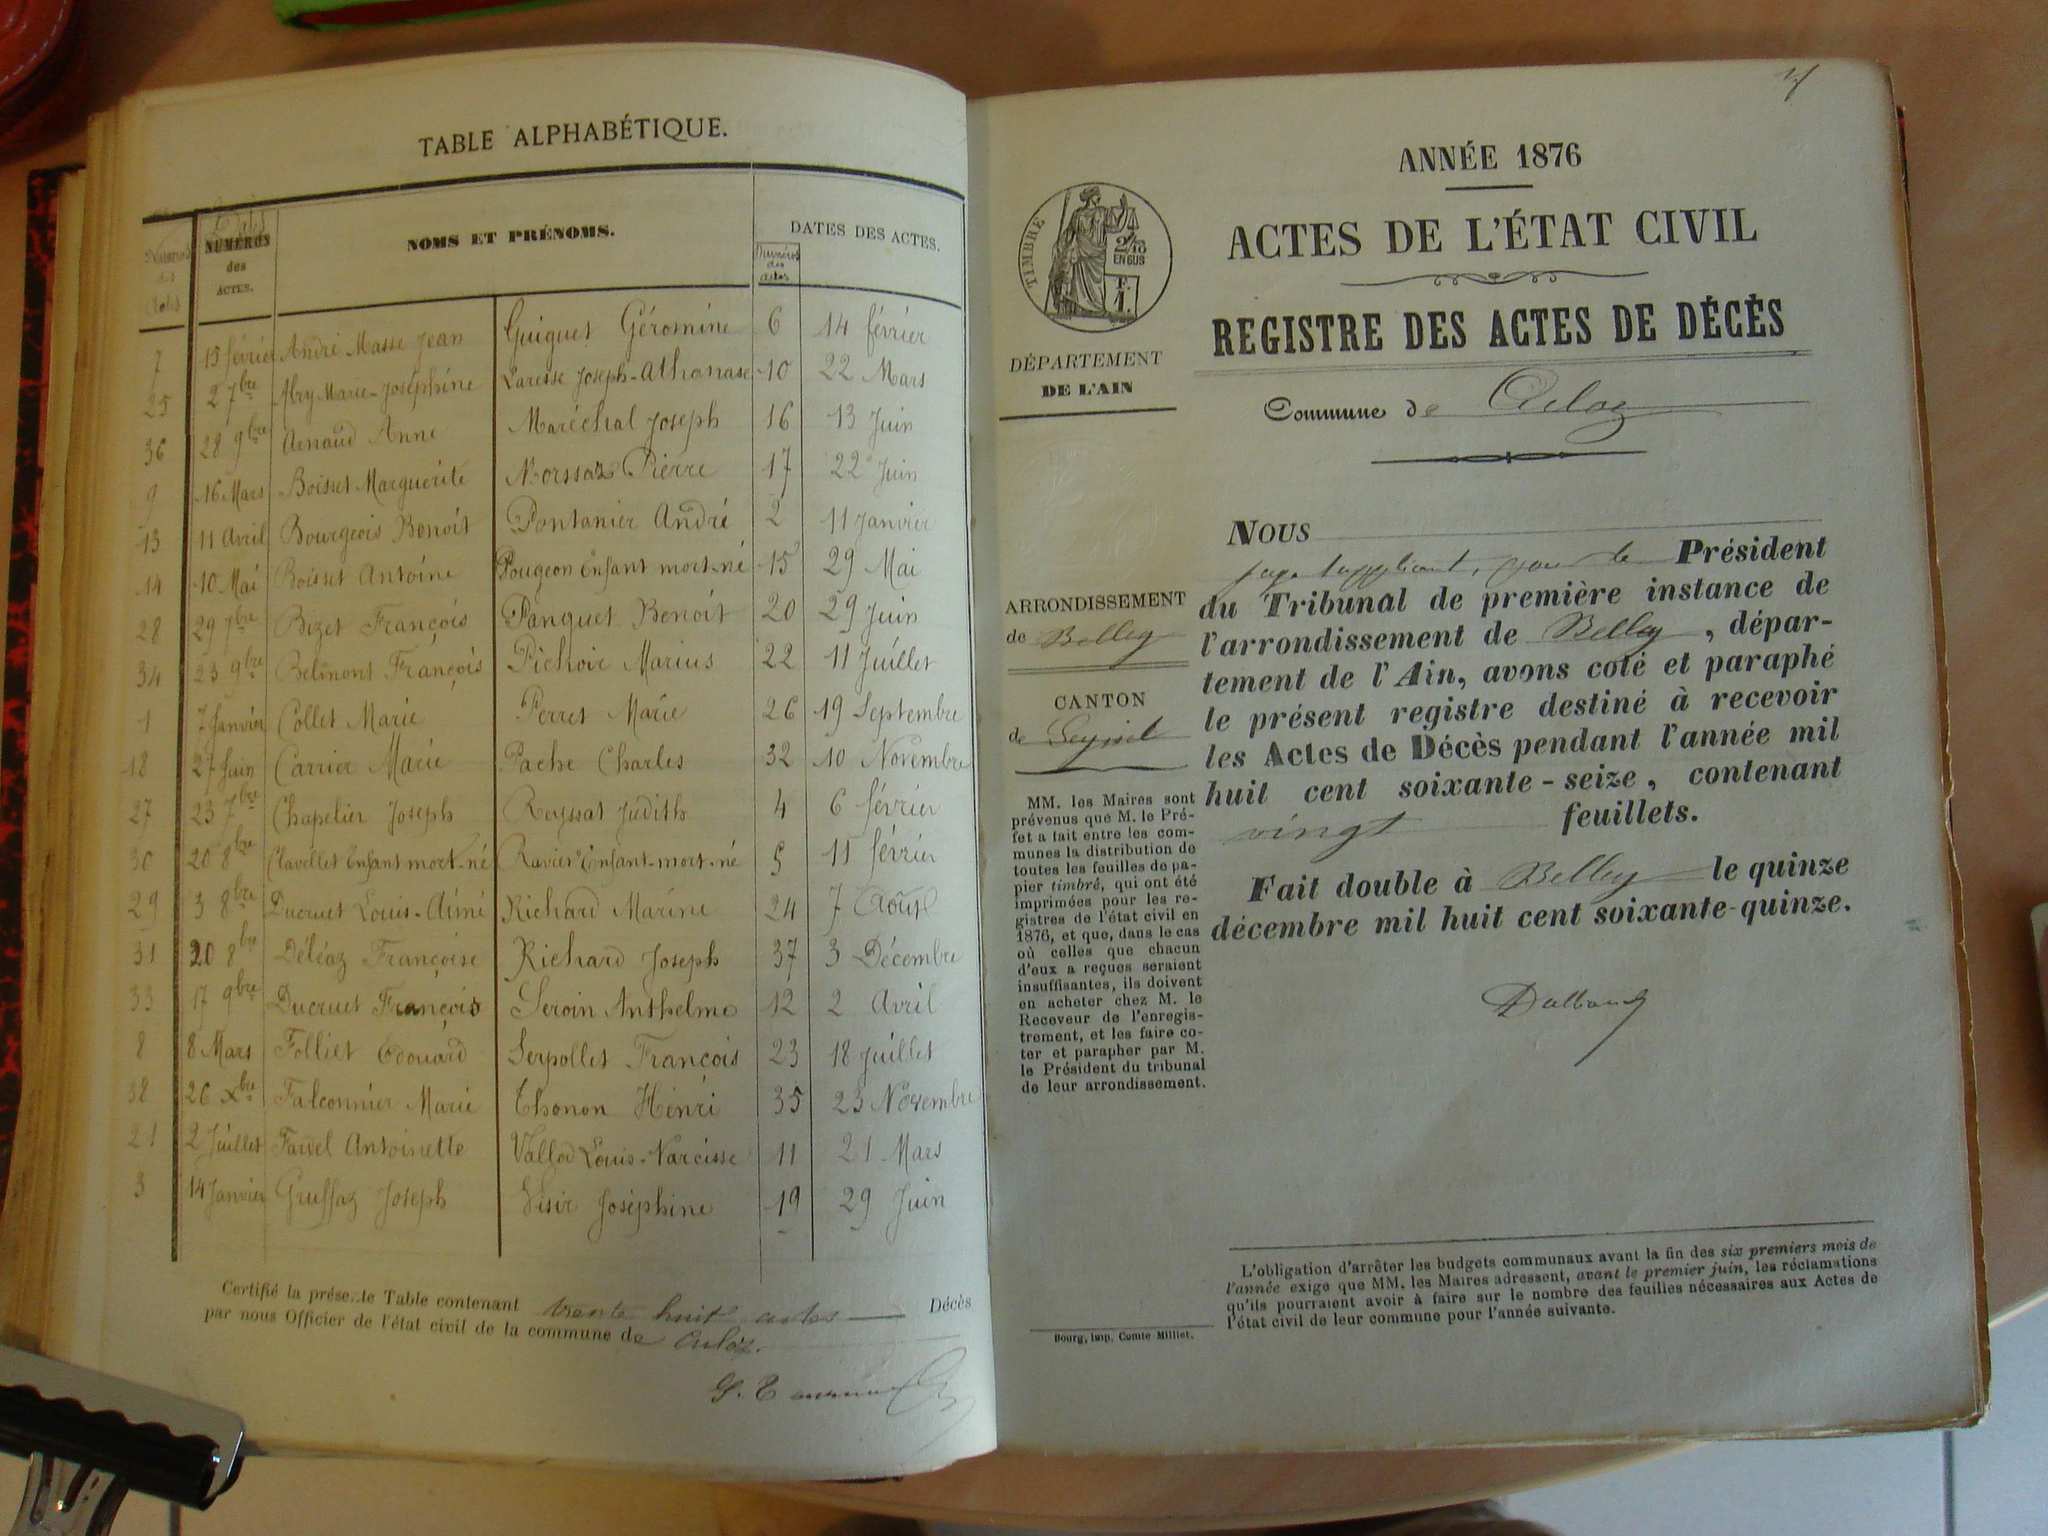 TABLE ALPHABÉTIQUE.
NUMÉROS
des
ACTES.
NOMS ET PRÉNOMS.
DATES DES ACTES.
Numéros
des
actes
7 13 février André Masse Jean Guiguet Géromine 6 14 février
25 2 7bre Abry Marie-Joséphine Laresse Joseph-Athanase 10 22 Mars
36 28 9bre Arnaud Anne Maréchal Joseph 16 13 Juin
9 16 Mars Boisset Marguerite Morssaz Pierre 17 22 Juin
13 11 Avril Bourgeois Benoit Pontanier André 2 11 Janvier
14 10 Mai Boisset Antoine Pougeon Enfant mort-né 15 29 Mai
28 29 7bre Bizet François Panguet Benoit 20 29 Juin
34 23 9bre Belmont François Pichoir Marius 22 11 Juillet
1 7 Janvier Collet Marie Perret Marie 26 19 Septembre
18 27 Juin Carrier Marie Pache Charles 32 10 Novembre
27 23 7bre Chapelier Joseph Reyssat Judith 4 6 février
30 20 8bre Clavellet Enfant mort-né Ravier Enfant-mort-né 5 11 février
29 3 8bre Ducruet Louis-Aimé Richard Marine 24 7 Août
31 20 8bre Déléaz Françoise Richard Joseph 37 3 Décembre
33 17 9bre Ducruet François Seroin Anthelme 12 2 Avril
8 8 Mars Folliet Edouard Serpollet François 23 18 Juillet
38 26 Xbre Falconnier Marie Thonon Hénri 35 23 Novembre
21 2 Juillet Favel Antoinette Vallod Louis-Narcisse 11 21 Mars
3 14 Janvier Gruffaz Joseph Visir Joséphine 19 29 Juin
Certifié la présente Table contenant trente huit actes Décès
par nous Officier de l'état civil de la commune de Culoz.
ANNÉE 1876
ACTES DE L'ÉTAT CIVIL
REGISTRE DES ACTES DE DÉCÈS
Commune de Culoz
TIMBRE
2/10
EN SUS
F.
1.
DÉPARTEMENT
DE L'AIN
ARRONDISSEMENT
de Belley
CANTON
de Seyssel
MM. les Maires sont
prévenus que M. le Pré-
fet a fait entre les com-
munes la distribution de
toutes les feuilles de pa-
pier timbré, qui ont été
imprimées pour les re-
gistres de l'état civil en
1876, et que, dans le cas
où celles que chacun
d'eux a reçues seraient
insuffisantes, ils doivent
en acheter chez M. le
Receveur de l'enregis-
trement, et les faire co-
ter et parapher par M.
le Président du tribunal
de leur arrondissement.
NOUS
juge suppléant, pour le Président
du Tribunal de première instance de
l'arrondissement de Belley, dépar-
tement de l'Ain, avons coté et paraphé
le présent registre destiné à recevoir
les Actes de Décès pendant l'année mil
huit cent soixante-seize, contenant
vingt feuillets.
Fait double à Belley le quinze
décembre mil huit cent soixante-quinze.
L'obligation d'arrêter les budgets communaux avant la fin des six premiers mois de
l'année exige que MM. les Maires adressent, avant le premier juin, les réclamations
qu'ils pourraient avoir à faire sur le nombre des feuilles nécessaires aux Actes de
l'état civil de leur commune pour l'année suivante.
Bourg, imp. Comte Milliet.